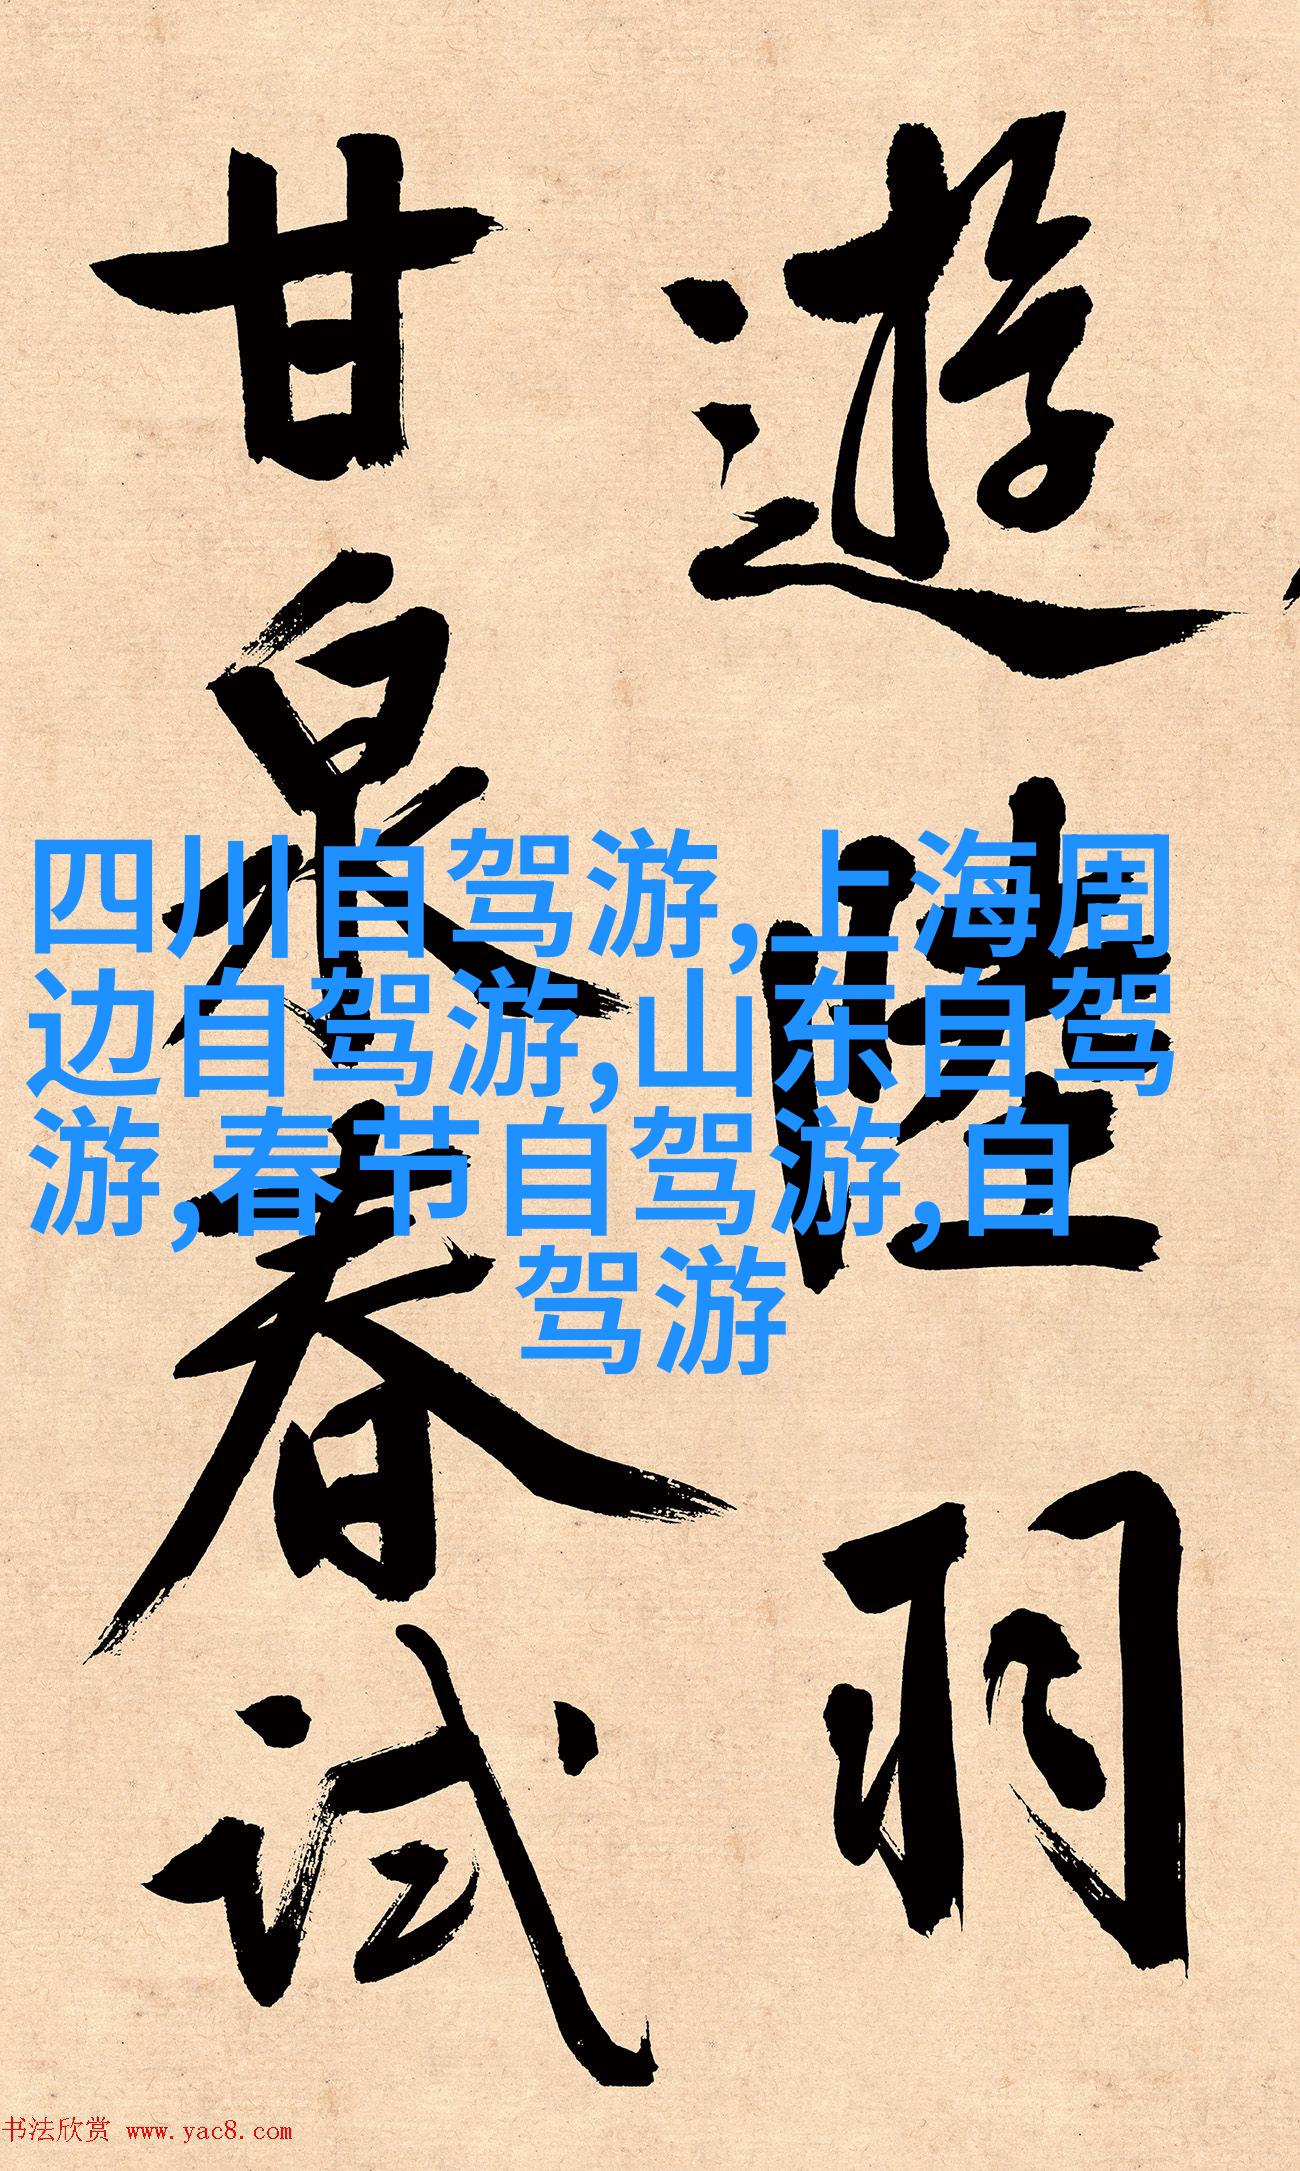 遊陸羽
甘泉春试
四川自驾游,上海周
边自驾游,山东自驾
游,春节自驾游,自
驾游
书法欣赏 www.yac8.com